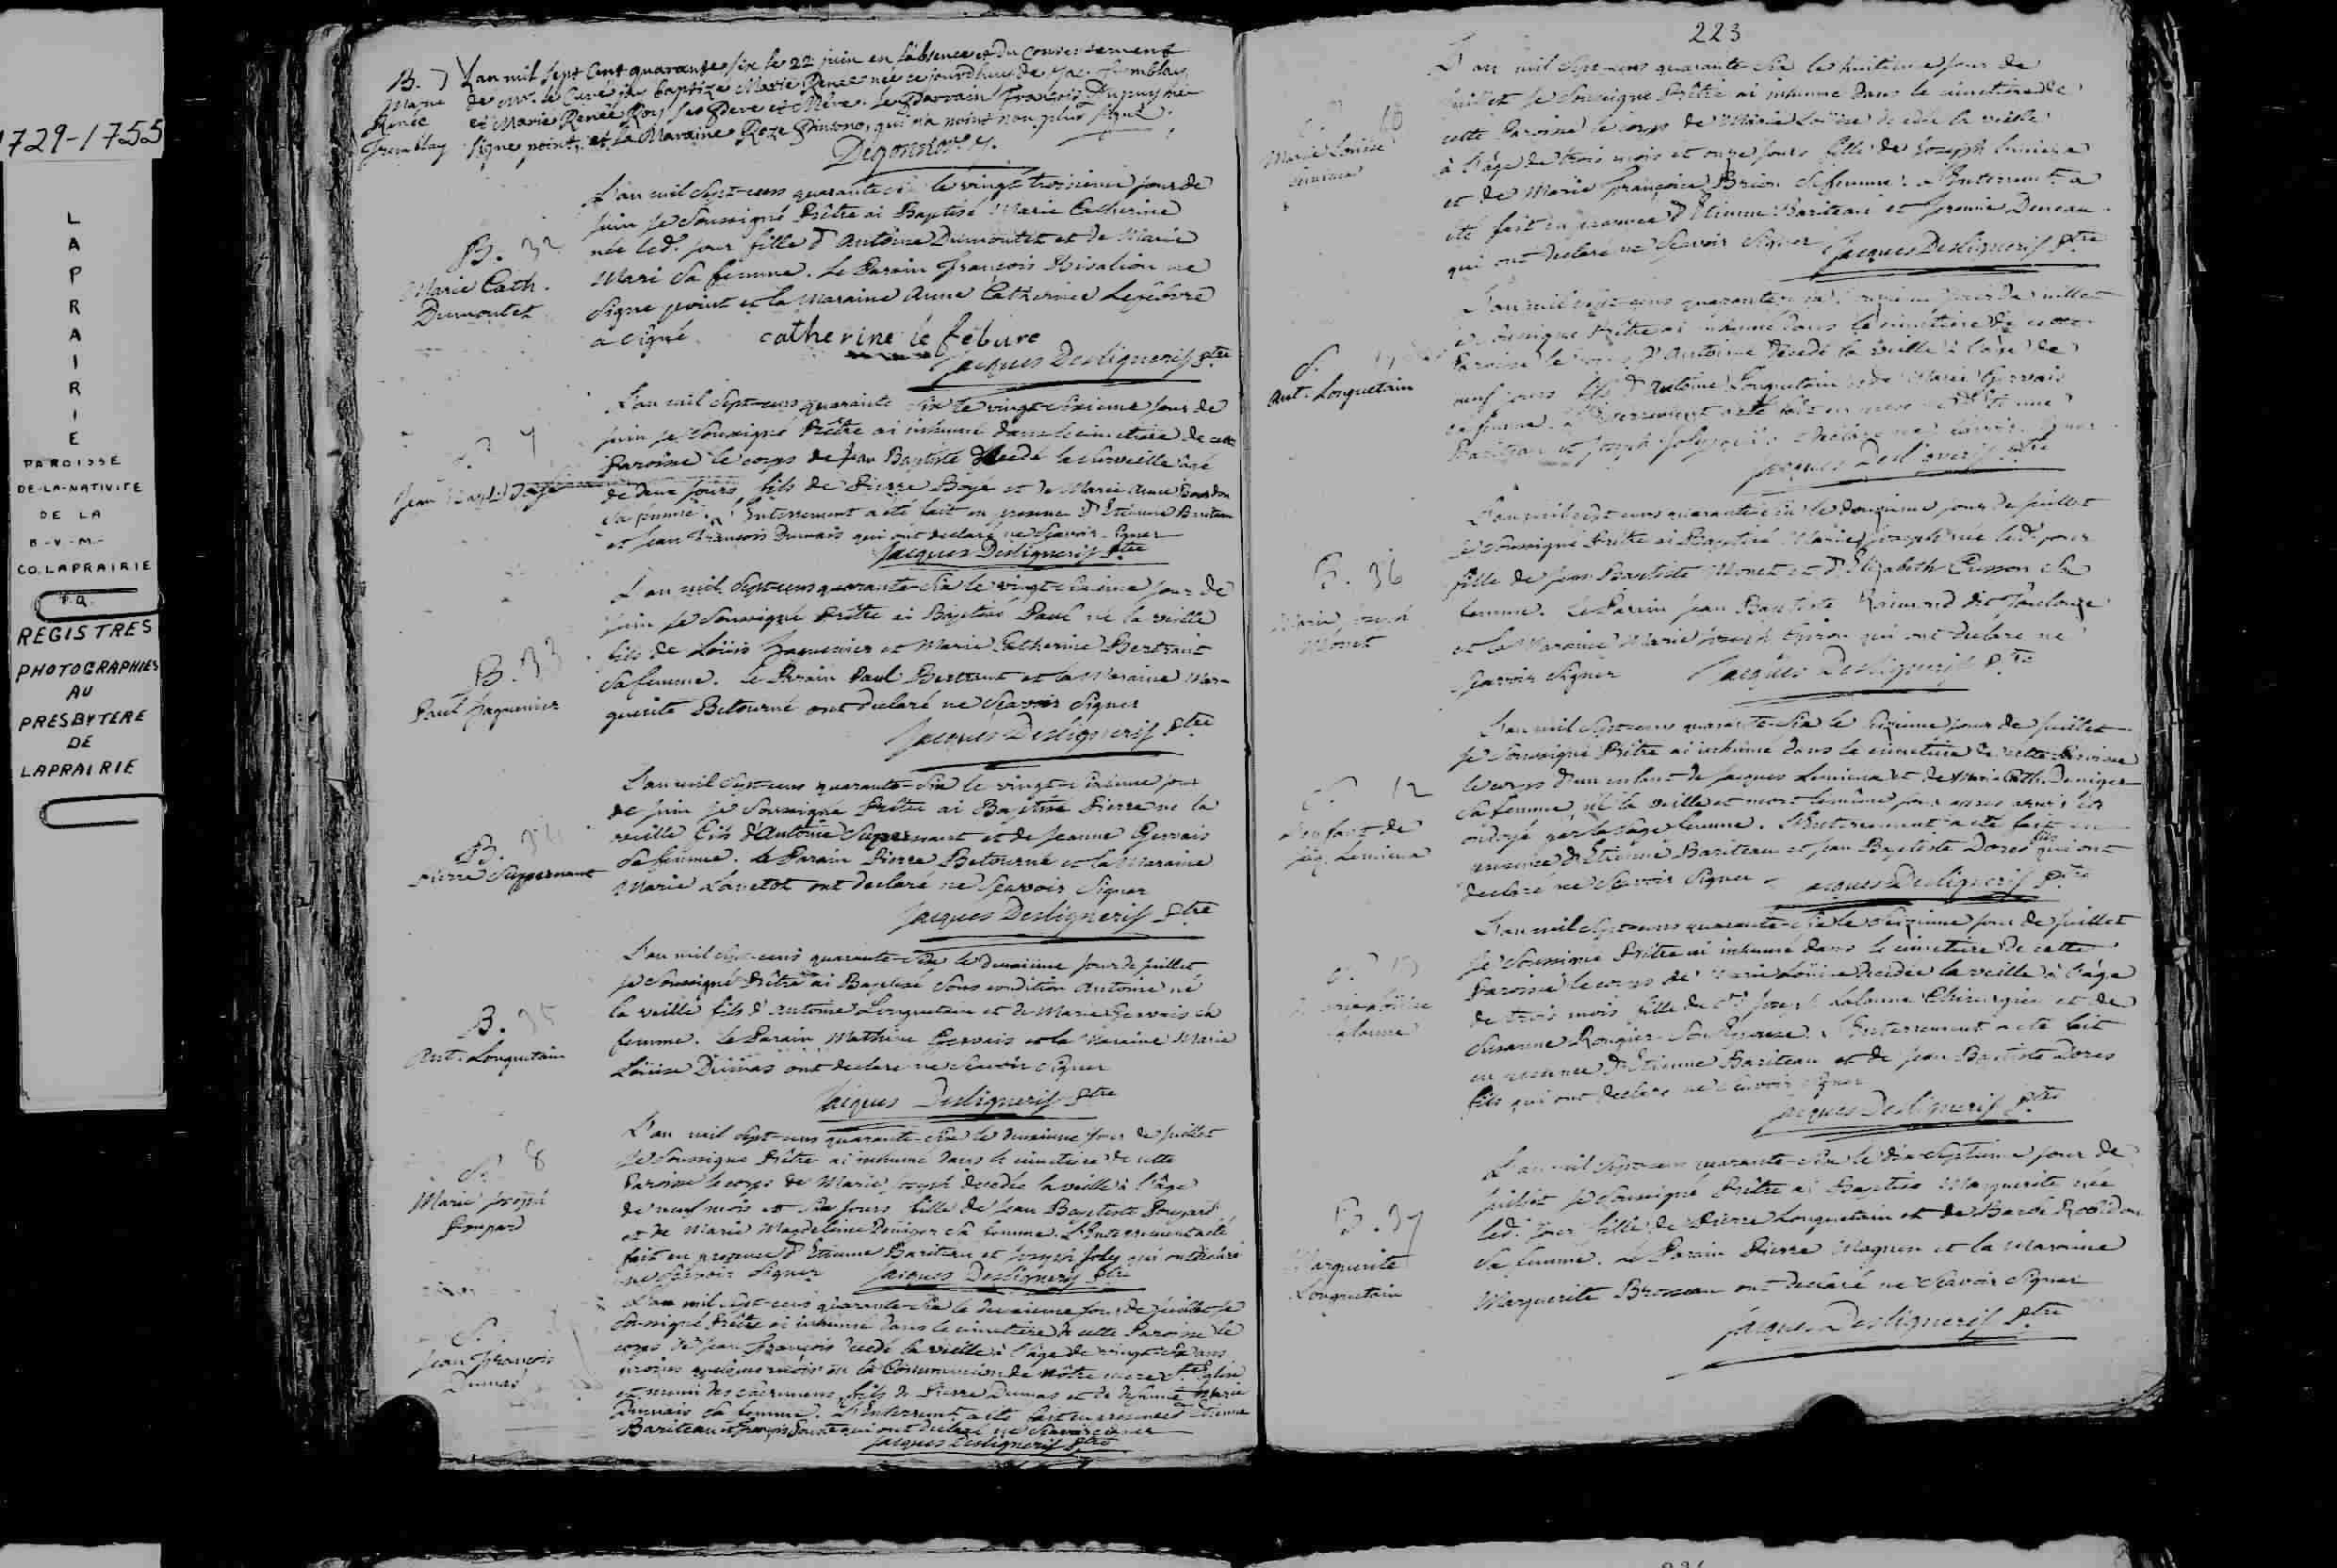 1729-1755
L
A
P
R
A
I
R
I
E
PAROISSE
DE-LA-NATIVITE
DE LA
B-V-M-
CO. LAPRAIRIE
P.Q.
REGISTRES
PHOTOGRAPHIES
AU
PRESBYTERE
DE
LAPRAIRIE
B. 7
Marie
Renée
Tremblay
L'an mil sept Cent quarante six le 22 juin en l'absence et du consentement
de mr. le Curé j'ai baptizé Marie Renée née ce jourdhuy de Jac. Tremblay
et Marie Renée Roy ses Pere et Mère. Le Parrain François Dupuy n'ai
signé point, et la Maraine Roze Pinsono, qui n'a point non plus signé.
B. 32
Marie Cath.
Dumontet
L'an mil sept-cens quarante six le vingt troisieme jour de
juin je soussigné Prêtre ai Baptisé Marie Catherine
née led. jour fille d'Antoine Dumontet et de Marie
Mari sa femme. Le Parain François Bisalion ne
signe point et la Maraine Anne Catherine Lefebvre
a signé. catherine le febure
Jacques Desligneris ptre
L'an mil sept-cens quarante six le vingt-sixieme jour de
juin je soussigné Prêtre ai inhumé dans le cimetiere de cette
Paroisse le corps de Jean Baptiste décedé la surveille âgé
de deux jours fils de Pierre Boyé et de Marie Anne Bourdon
sa femme. L'Enterrement a été fait en presence d'Etienne Bariteau
et Jean François Dumais qui ont declaré ne sçavoir signer
Jacques Desligneris ptre
B. 33
Paul Paquenier
L'an mil sept-cens quarante-six le vingt-sixieme jour de
juin je soussigné Prêtre ai Baptisé Paul né la veille
fils de Loüis Paquenier et Marie Catherine Bertrant
sa femme. Le Parain Paul Bertrant et la Maraine Mar-
guerite Betourné ont declaré ne sçavoir signer
Jacques Desligneris ptre
B. 34
Pierre Suppernant
L'an mil sept-cens quarante-six le vingt-sixieme jour
de juin je soussigné Prêtre ai Baptisé Pierre né la
veille fils d'Antoine Suppernant et de Jeanne Gervais
sa femme. Le Parain Pierre Betourné et la Maraine
Marie Lanctot ont declaré ne sçavoir signer
Jacques Desligneris ptre
B. 35
Ant. Longuetain
L'an mil sept-cens quarante-six le deuxieme jour de juillet
je soussigné Prêtre ai Baptisé sous condition Antoine né
la veille fils d'Antoine Longuetain et de Marie Gervais sa
femme. Le Parain Mathieu Gervais et la Maraine Marie
Loüise Dumas ont declaré ne sçavoir signer
Jacques Desligneris ptre
S. 8
Marie joseph
Poupard
L'an mil sept-cens quarante-six le deuxieme jour de juillet
je soussigné Prêtre ai inhumé dans le cimetiere de cette
Paroisse le corps de Marie joseph décedée la veille à l'âge
de neuf mois et six jours fille de Jean Baptiste Poupard
et de Marie Magdeleine Deniger sa femme. L'Enterrement a été
fait en presence d'Etienne Bariteau et Joseph Joly qui ont declaré
ne sçavoir signer Jacques Desligneris ptre
S.
Jean François
Dumas
L'an mil sept-cens quarante-six le deuxieme jour de juillet je
soussigné Prêtre ai inhumé dans le cimetiere de cette Paroisse le
corps de Jean François décedé la veille à l'âge de vingt-six ans
moins quelques mois en la Communion de nôtre mere Ste Eglise
et muni des sacremens, fils de Pierre Dumas et de defunte Marie
Dumais sa femme. L'Enterremt. a été fait en presence d'Etienne
Bariteau et qui ont declaré ne sçavoir signer
Jacques Desligneris ptre
223
S. 10
Marie Loüise
L'an mil sept-cens quarante-six le huitieme jour de
juillet je soussigné Prêtre ai inhumé dans le cimetiere de
cette Paroisse le corps de Marie Loüise décedée la veille
à l'âge de trois mois et onze jours fille de Joseph
et de Marie Françoise Brion sa femme. L'Enterremt. a
été fait en presence d'Etienne Bariteau et
qui ont declaré ne sçavoir signer Jacques Desligneris ptre
S.
Ant. Longuetain
L'an mil sept-cens quarante six jour de juillet
je soussigné Prêtre ai inhumé dans le cimetiere de cette
Paroisse le corps d'Antoine décedé la veille à l'âge de
neuf jours fils d'Antoine Longuetain et de Marie Gervais
sa femme. L'Enterrement a été fait en presence d'Etienne
Bariteau et Joseph Joly qui ont declaré ne sçavoir signer
Jacques Desligneris ptre
B. 36
Marie joseph
Monet
L'an mil sept-cens quarante-six le douzieme jour de juillet
je soussigné Prêtre ai Baptisé Marie joseph née led. jour
fille de Jean Baptiste Monet et d'Elizabeth Cusson sa
femme. Le Parain Jean Baptiste Raimond dit Toulouze
et la Maraine Marie Joseph qui ont declaré ne
sçavoir signer Jacques Desligneris ptre
S. 12
L'enfant de
Jaq. Lemieux
L'an mil sept-cens quarante-six le jour de juillet
je soussigné Prêtre ai inhumé dans le cimetiere de cette Paroisse
le corps d'un enfant de Jacques Lemieux et de Marie Cath. Deniger
sa femme, né la veille et mort le même jour apres avoir été
ondoyé par la sage femme. L'Enterrement a été fait en
presence d'Etienne Bariteau et Jean Baptiste Dores fils qui ont
declaré ne sçavoir signer Jacques Desligneris ptre
S. 13
Marie Loüise
Lalanne
L'an mil sept-cens quarante-six le seizieme jour de juillet
je soussigné Prêtre ai inhumé dans le cimetiere de cette
Paroisse le corps de Marie Loüise décedée la veille à l'âge
de trois mois fille de Sr. Joseph Lalanne Chirurgien et de
Susanne Rougier son Epouse. L'Enterrement a été fait
en presence d'Etienne Bariteau et de Jean Baptiste Dores
fils qui ont declaré ne sçavoir signer
Jacques Desligneris ptre
B. 37
Marguerite
Longuetain
L'an mil sept-cens quarante-six le dix-septieme jour de
juillet je soussigné Prêtre ai Baptisé Marguerite née
led. jour fille de Pierre Longuetain et de Barbe
sa femme. Le Parain Pierre Magnen et la Maraine
Marguerite Brosseau ont declaré ne sçavoir signer
Jacques Desligneris ptre